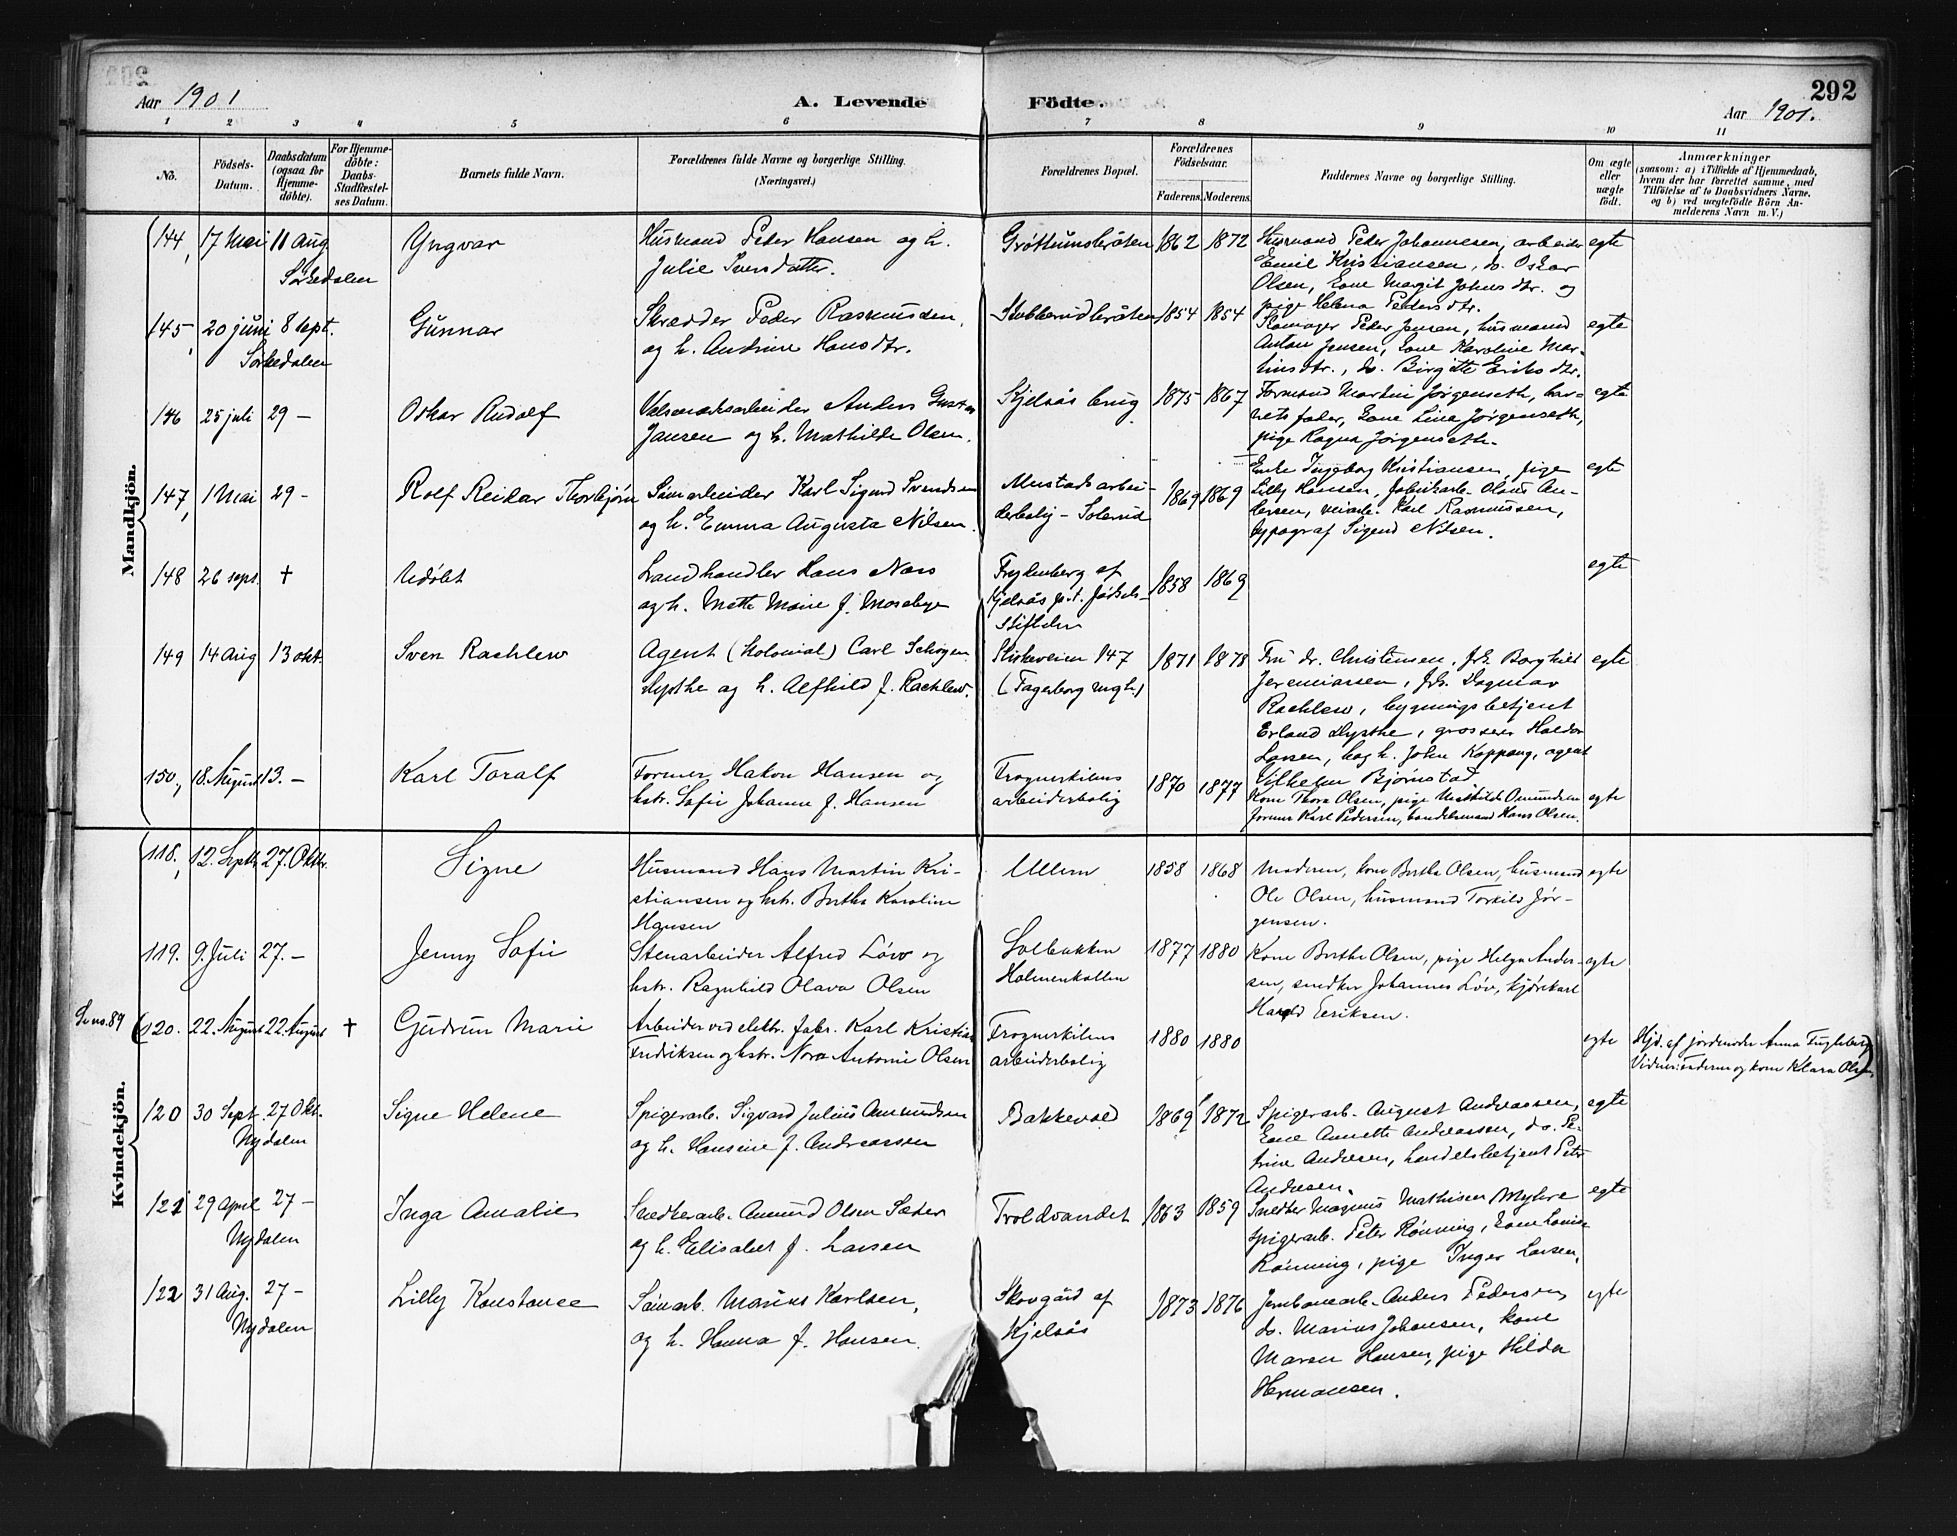 292
Aar 1901
A. Levende Födte.
Aar 1901.
1 2 3 4 5 6 7 8 9 10 11
No.
Födsels-
Datum.
Daabsdatum
(ogsaa for
Hjemme-
döbte).
For Hjemme-
döbte:
Daabs-
Stadfæstel-
ses Datum.
Barnets fulde Navn.
Forældrenes fulde Navne og borgerlige Stilling.
(Næringsvei.)
Forældrenes Bopæl.
Forældrenes
Födselsaar.
Faderens. Moderens.
Faddernes Navne og borgerlige Stilling.
Om ægte
eller
uægte
födt.
Anmærkninger
(saasom: a) i Tilfælde af Hjemmedaab,
hvem der har forrettet samme, med
Tilföielse af to Daabsvidners Navne.
og b) ved uægtefödte Börn An-
melderens Navn m. V.)
Mandkjön.
144, 17 Mai 11 Aug
Sörkedalen
Yngvar
Husmand Peder Hansen og h.
Julie Svensdatter.
Grøttumsbråten 1862 1872
Husmand Peder Johannesen, arbeider
Emil Kristiansen, do. Oskar
Olsen, kone Margit Johnsdtr. og
pige Helena Pedersdtr.
egte
145, 20 juni 8 sept.
Sörkedalen
Gunnar
Skrædder Peder Rasmussen,
og h. Andrine Hansdtr.
Stubberudbråten 1854 1854
Skomager Peder Jensen, husmand
Anton Jensen, kone Karoline Mar-
tinsdtr., do. Birgitte Eriksdtr.
egte
146 25 juli 29 –
Oskar Rudolf
Valseværksarbeider Anders Gustav
Jansen og h. Mathilde Olsen.
Kjelsås brug 1875 1867
Formand Martin Jørgenseth, bar-
nets fader, kone Lina Jørgenseth,
pige Ragna Jørgenseth.
egte
147, 1 Mai 29 –
Rolf Reidar Thorbjørn
Sömarbeider Karl Sigurd Svendsen
og h. Emma Augusta Nilsen.
Mustads arbei-
derbolig – Solerud
1869 1869
Enke Ingeborg Kristiansen, pige
Lilly Hansen, fabrikarb. Olaus An-
dersen, veiarb. Karl Rasmussen,
typograf Sigurd Nilsen.
egte
148 26 sept. †
Udöbt
Landhandler Hans Næss
og h. Mette Marie f. Mosebye
Frydenberg af
Kjelsås p.t. fødsels-
stiftelsen
1858 1869
egte
149 14 Aug 13 okt.
Sven Rachlew
Agent (Kolonial) Carl Schögen
Dysthe og h. Alfhild f. Rachlew.
Kirkeveien 147
(Fagerborg mgh)
1871 1878
Fru dr. Christensen, frk. Borghild
Jeremiassen, frk. Dagmar
Rachlew, bygningsbetjent
Erland Dysthe, grosserer Haldor
Larsen, bogh. John Koppang, agent
Vilhelm Bjørnstad
egte
150, 18. August 13. –
Karl Toralf
Former Hakon Hansen og
hstr. Sofie Johanne f. Hansen
Frognerkilens
arbeiderbolig
1870 1877
Kone Thora Olsen, pige Mathilde Osmundsen
former Karl Pedersen, handelsmand Hans Olsen.
egte
Kvindekjön.
118, 12. Septbr 27. Oktbr.
Signe
Husmand Hans Martin Kri-
stiansen og hstr. Berthe Karoline
Hansen
Ullern 1858 1868
Moderen, kone Berthe Olsen, husmand
Ole Olsen, husmand Torkild Jör-
gensen.
egte
119. 9. Juli 27. –
Jenny Sofie
Stenarbeider Alfred Löw og
hstr. Ragnhild Olava Olsen
Solbakken
Holmenkollen
1877 1880
Kone Berthe Olsen, pige Helga Ander-
sen, snedker Johannes Löv, kjörekarl
Harald Eriksen.
egte
Se no. 89
(120. 22. August 22. August †
Gudrun Marie
Arbeider ved elektr. fabr. Karl Kristian
Fredriksen og hstr. Nora Antonie Olsen
Frognerkilens
arbeiderbolig
1880 1880
egte
Hjd. af jordemoder Anna Fugleberg
Vidner: Faderen og kone Klara Olsen)
120 30 Sept. 27 Okt.
Nydalen
Signe Helene
Spigerarb. Sigvard Julius Amundsen
og h. Hansine f. Andreassen
Bakkevold 1869 1872
Spigerarb. August Andreassen,
kone Annette Andreassen, do. Pe-
trine Andresen, handelsbetjent Peter
Andresen.
egte
121 29 april 27 –
Nydalen
Inga Amalie
Snedkerarb. Amund Olsen Sæter
og h. Elisabet f. Larsen
Troldvandet 1863 1859
Snedker Magnus Mathisen Myhre
spigerarb. Peter Rönning, kone Louise
Rönning, pige Inger Larsen.
egte
122 31 Aug. 27 –
Nydalen
Lilly Konstance
Sömarb. Marius Karlsen,
og h. Hanna f. Hansen.
Skovgård af
Kjelsås
1873 1876
Jernbanearb. Anders Pedersen
do. Marius Johansen, kone
Maren Hansen, pige Hilda
Hermansen.
egte